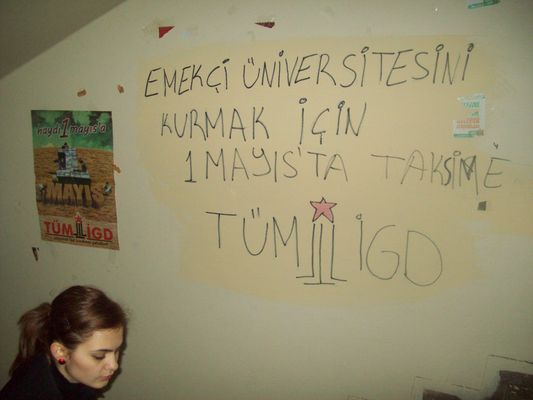 EMEKÇİ ÜNİVERSİTESİNİ
KURMAK İÇİN
1 MAYIS'TA TAKSİM'E
TÜM İGD
haydi 1 mayıs'a
1 MAYIS
TÜM İGD